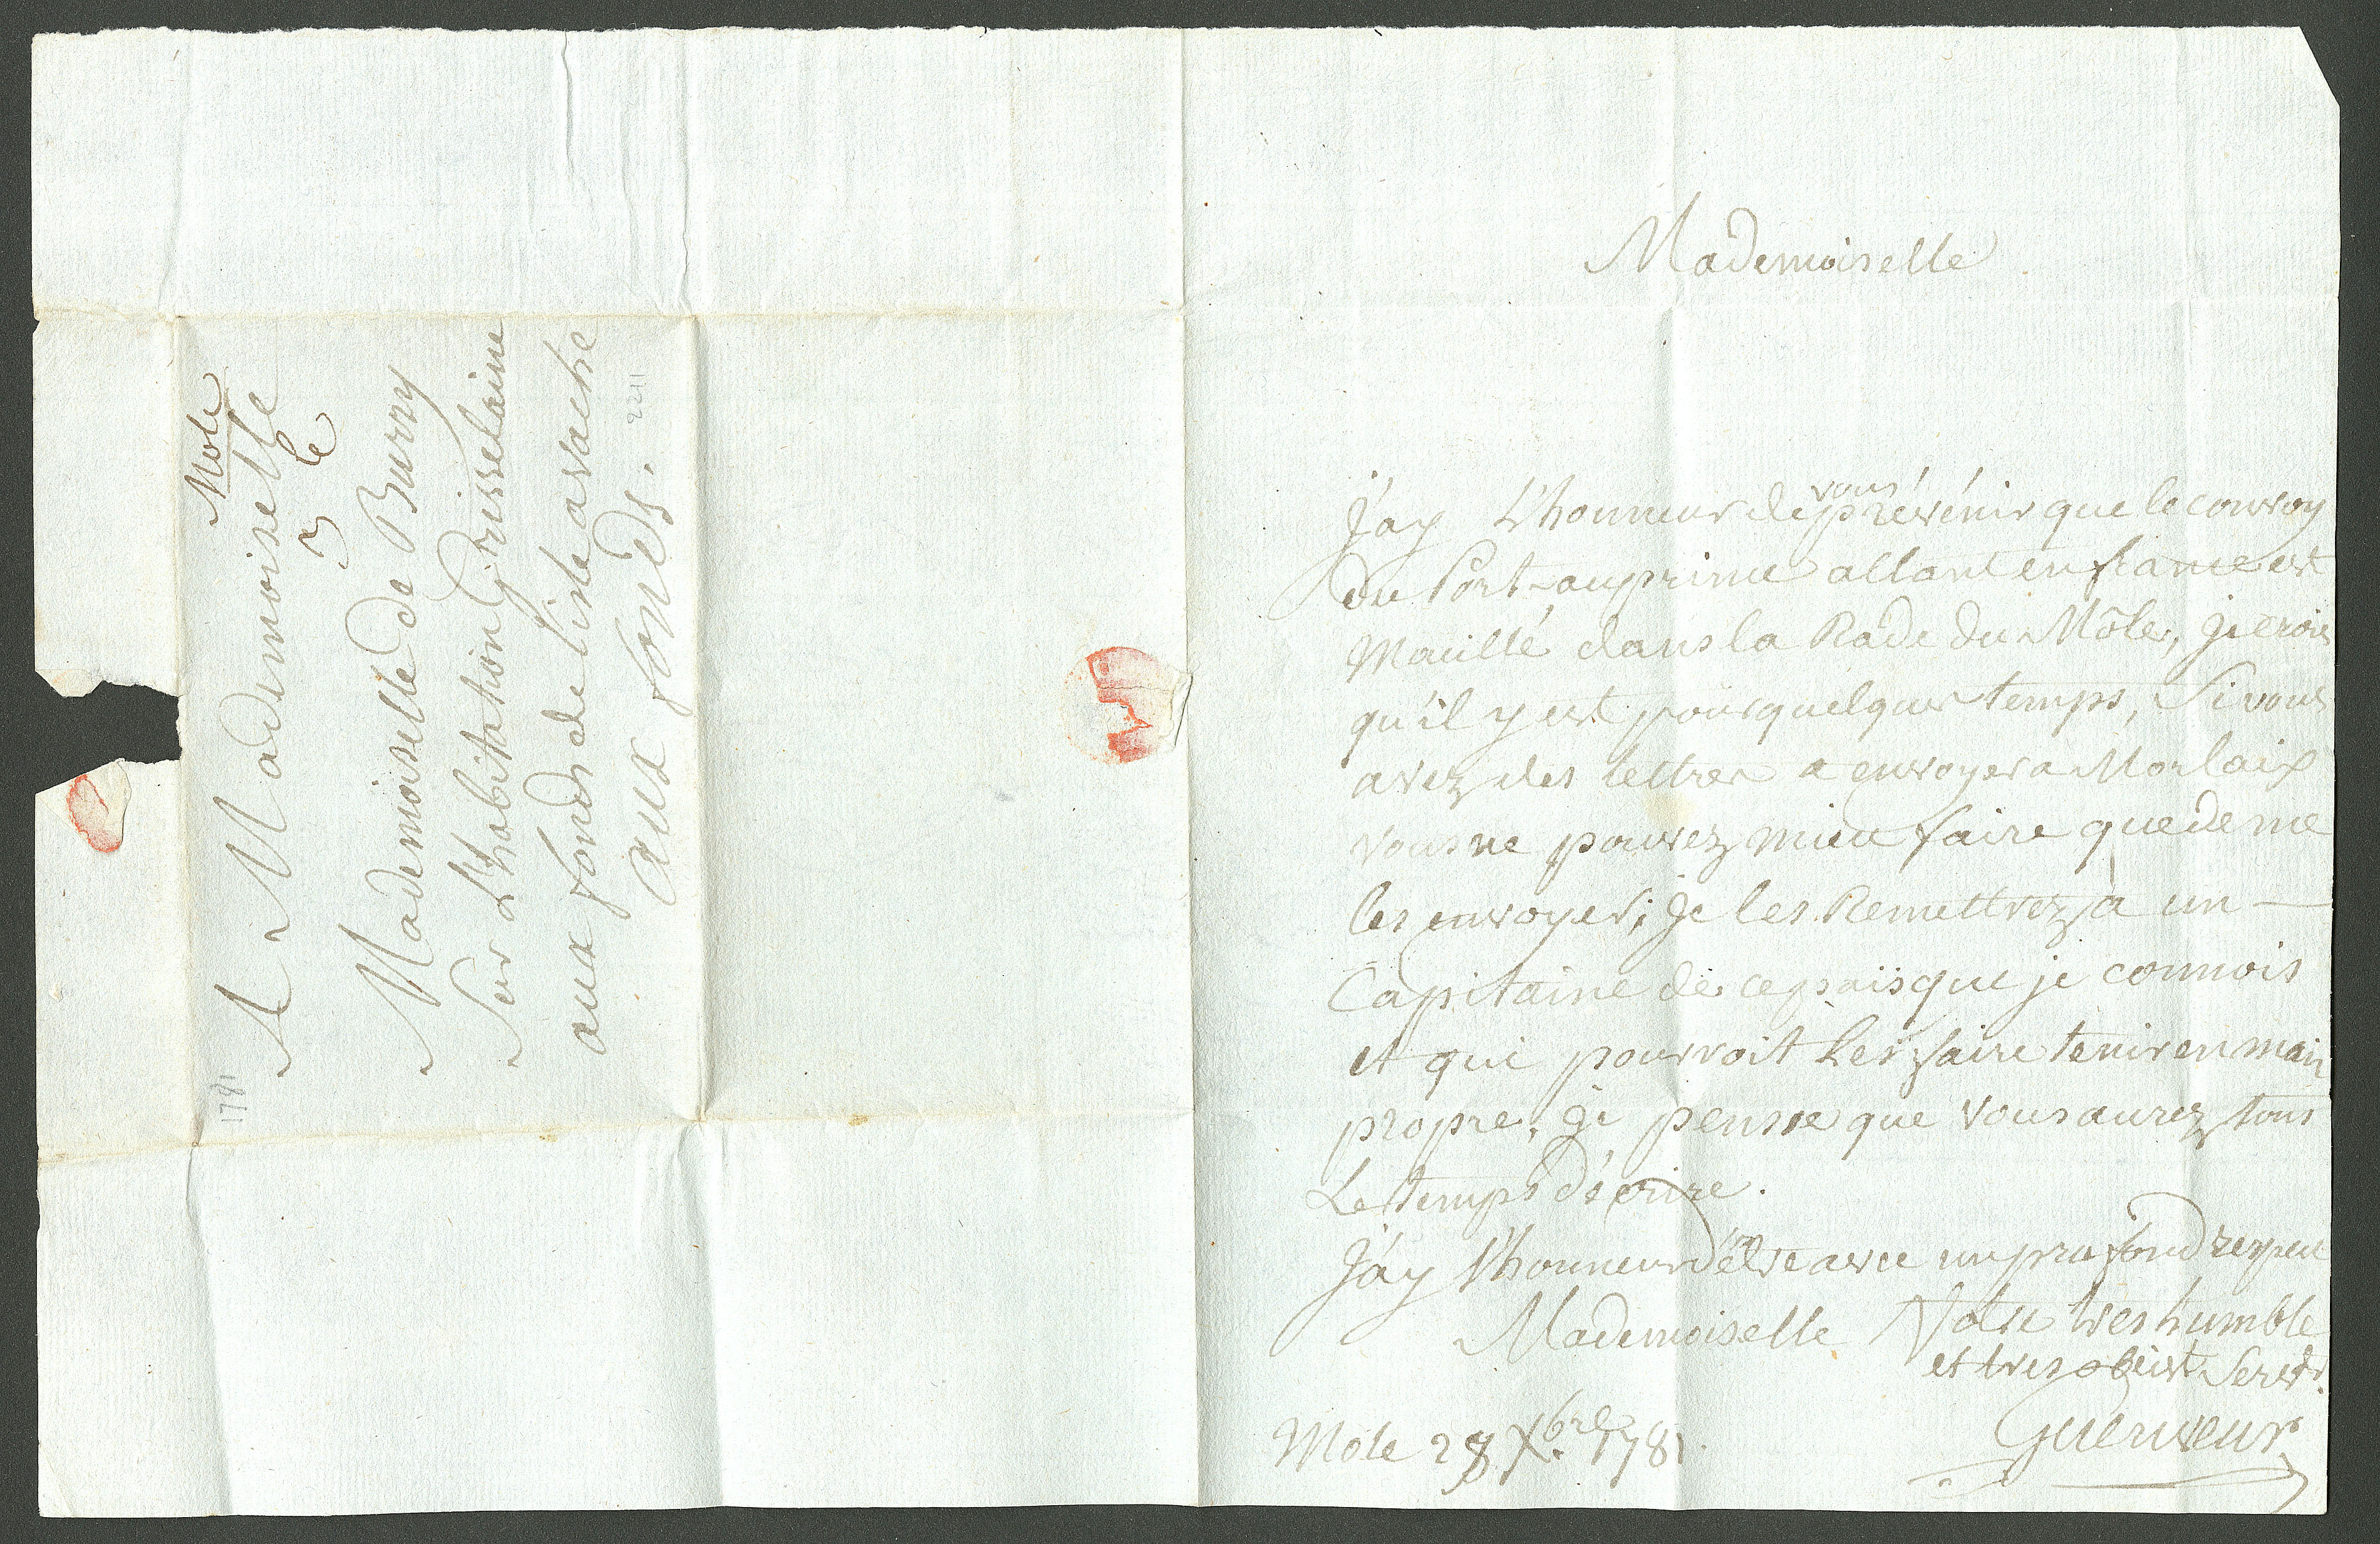 Mole
A Mademoiselle
3 le
Mademoiselle de Burny
Sur L'habitation Grisselaine
aux fonds de l'isle avache
aux fonds.
1781
2211
Mademoiselle
J'ay L'honneur de vous prévénir que le convoy
du Port-auprince allant en france est
Mouillé dans la Rade du Môle, je crois
qu'il y est pour quelques temps, Si vous
avez des lettres a envoyer a Morlaix
vous ne pouvez mieu faire que de me
les envoyer; je les Remettrez à un —
Capitaine de ce païs que je connois
et qui pourroit les faire tenir en main
propre, je pensse que vous aurez tous
Le temps d'écrire.
J'ay l'honneur d'être avec un profond respect
Mademoiselle Votre tres humble
et tres obeist Servtr.
Mole 28 Xbre 1781.
Guerveur